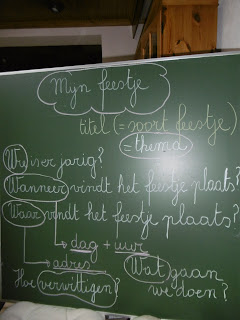 Mijn feestje
titel (= soort feestje)
= thema
Wie is er jarig?
Wanneer vindt het feestje plaats?
Waar vindt het feestje plaats?
dag + uur
adres
Wat gaan
we doen?
Hoe verwittigen?